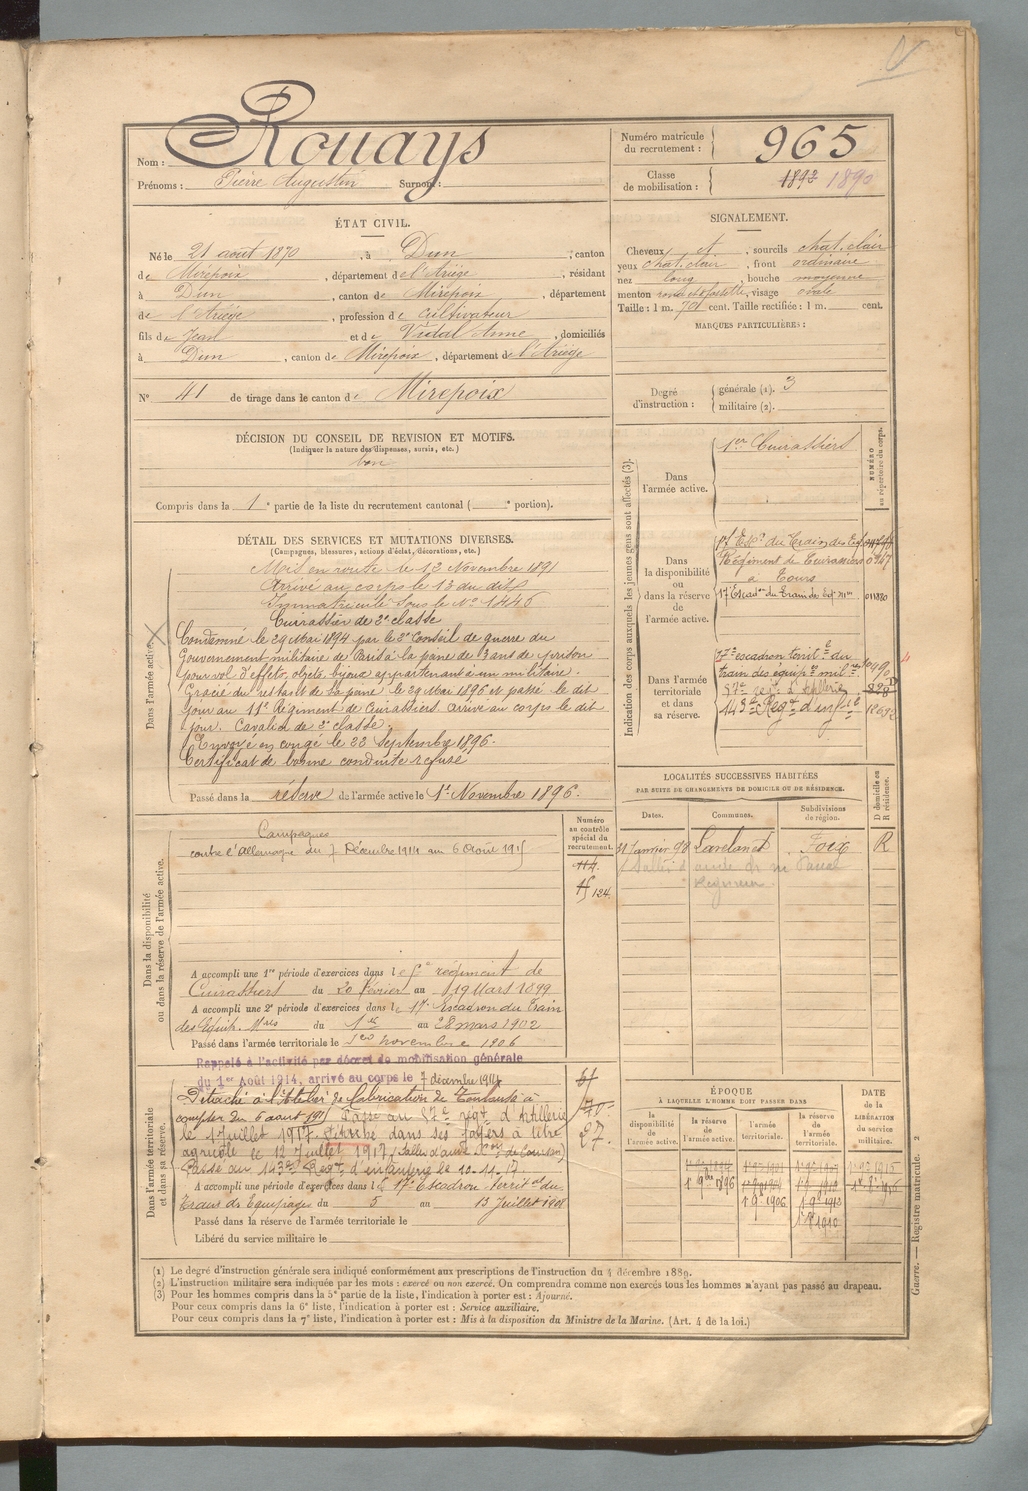 Nom : Rouays
Prénoms : Pierre Augustin Surnom :
Numéro matricule du recrutement : 965
Classe de mobilisation : 1892 1890
ÉTAT CIVIL.
Né le 21 août 1870, à Dun, canton
de Mirepoix, département de l'Ariège, résidant
à Dun, canton de Mirepoix, département
de l'Ariège, profession de cultivateur
fils de Jean et de Vidal Anne, domiciliés
à Dun, canton de Mirepoix, département de l'Ariège
N° 41 de tirage dans le canton de Mirepoix
SIGNALEMENT.
Cheveux et, sourcils chat. clair
yeux chat. clair, front ordinaire
nez long, bouche moyenne
menton rond et fossette, visage ovale
Taille : 1 m. 701 cent. Taille rectifiée : 1 m. cent.
MARQUES PARTICULIÈRES :
Degré d'instruction :
générale (1). 3
militaire (2).
DÉCISION DU CONSEIL DE REVISION ET MOTIFS.
(Indiquer la nature des dispenses, sursis, etc.)
bon
Compris dans la 1e partie de la liste du recrutement cantonal ( e portion).
DÉTAIL DES SERVICES ET MUTATIONS DIVERSES.
(Campagnes, blessures, actions d'éclat, décorations, etc.)
Dans l'armée active.
Mis en route le 12 Novembre 1891
Arrivé au corps le 13 du dit
Immatriculé sous le N° 1446
Cuirassier de 2e classe
Condamné le 29 Mai 1894 par le 2e Conseil de guerre du
Gouvernement militaire de Paris à la peine de 3 ans de prison
pour vol d'effets, objets, bijoux appartenant à un militaire.
Gracié du restant de sa peine le 29 Mai 1896 et passé le dit
jour au 11e Régiment de Cuirassiers arrivé au corps le dit
jour. Cavalier de 2e classe.
Envoyé en congé le 23 Septembre 1896.
Certificat de bonne conduite refusé
Passé dans la réserve de l'armée active le 1er Novembre 1896.
Indication des corps auxquels les jeunes gens sont affectés (3).
NUMÉRO au répertoire du corps.
Dans l'armée active.
1er Cuirassiers
Dans la disponibilité ou dans la réserve de l'armée active.
Régiment de Cuirassiers
à Tours
Dans l'armée territoriale et dans sa réserve.
17e escadron territ. du
train des équip. mil.
143e Reg.t d'inf.
LOCALITÉS SUCCESSIVES HABITÉES
PAR SUITE DE CHANGEMENTS DE DOMICILE OU DE RÉSIDENCE.
Dates. Communes. Subdivisions de région. D domicile ou R résidence.
Janvier 98 Lavelanet Foix R
Dans la disponibilité ou dans la réserve de l'armée active.
Numéro au contrôle spécial du recrutement.
Campagnes
contre l'Allemagne du 7 Décembre 1914 au 6 Août 1915
124
A accompli une 1re période d'exercices dans le régiment de
Cuirassiers du 20 février au 19 Mars 1899
A accompli une 2e période d'exercices dans le 17e Escadron du Train
des Equip. Mres du 1er au 28 mars 1902
Passé dans l'armée territoriale le 1er novembre 1906
Rappelé à l'activité par décret de mobilisation générale
du 1er Août 1914, arrivé au corps le 7 décembre 1914
Dans l'armée territoriale et dans sa réserve.
Détaché à l'Atelier de fabrication de Toulouse à
compter du 6 août 1915 Passé au 57e régt d'Artillerie
le 1 Juillet 1917. Détaché dans ses foyers à titre
agricole le 12 Juillet 1917
Passé au 143e Régt d'infanterie le 10-11-17.
27.
A accompli une période d'exercices dans le 17e Escadron Territal du
Train des Equipages du 5 au 13 Juillet 1908
Passé dans la réserve de l'armée territoriale le
Libéré du service militaire le
ÉPOQUE
À LAQUELLE L'HOMME DOIT PASSER DANS
la disponibilité de l'armée active. la réserve de l'armée active. l'armée territoriale. la réserve de l'armée territoriale.
DATE de la LIBÉRATION du service militaire.
(1) Le degré d'instruction générale sera indiqué conformément aux prescriptions de l'instruction du 4 décembre 1889.
(2) L'instruction militaire sera indiquée par les mots : exercé ou non exercé. On comprendra comme non exercés tous les hommes n'ayant pas passé au drapeau.
(3) Pour les hommes compris dans la 5e partie de la liste, l'indication à porter est : Ajourné.
Pour ceux compris dans la 6e liste, l'indication à porter est : Service auxiliaire.
Pour ceux compris dans la 7e liste, l'indication à porter est : Mis à la disposition du Ministre de la Marine. (Art. 4 de la loi.)
Guerre. — Registre matricule. 2